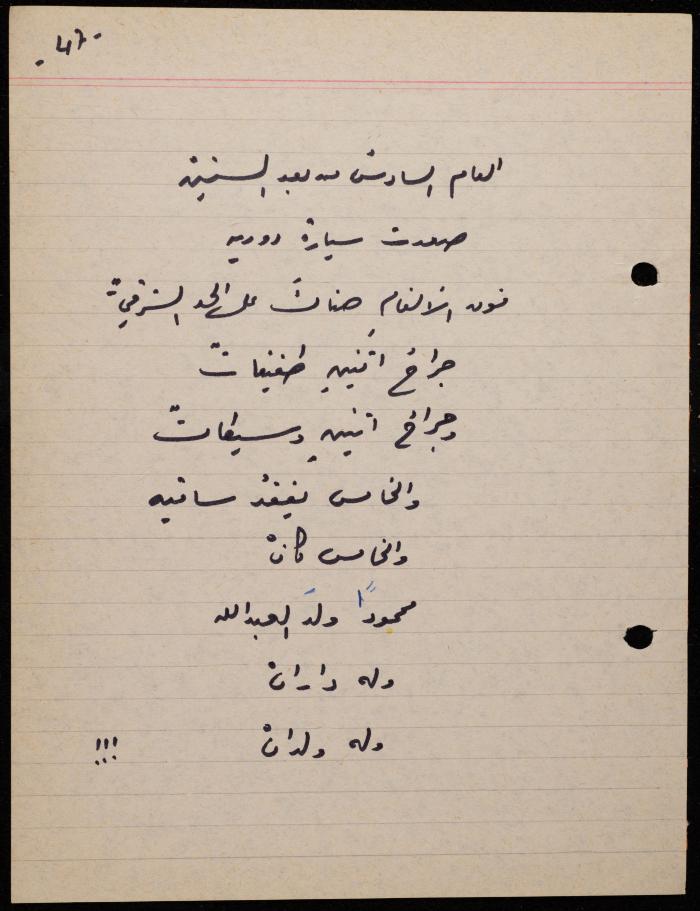 - ٤٦ -
العام السادس من بعد الستينْ
صعدت سيارة دوريه
فوق الألغامِ هناكَ على الحد الشرقيّْ
جراحُ اثنينِ طفيفاتْ
وجراحُ اثنينِ وسيطاتْ
والخامس يفقدُ ساقيه
والخامس كانْ
محموداً ولدَ العبدالله
وله دارانْ
وله ولدانْ !!!